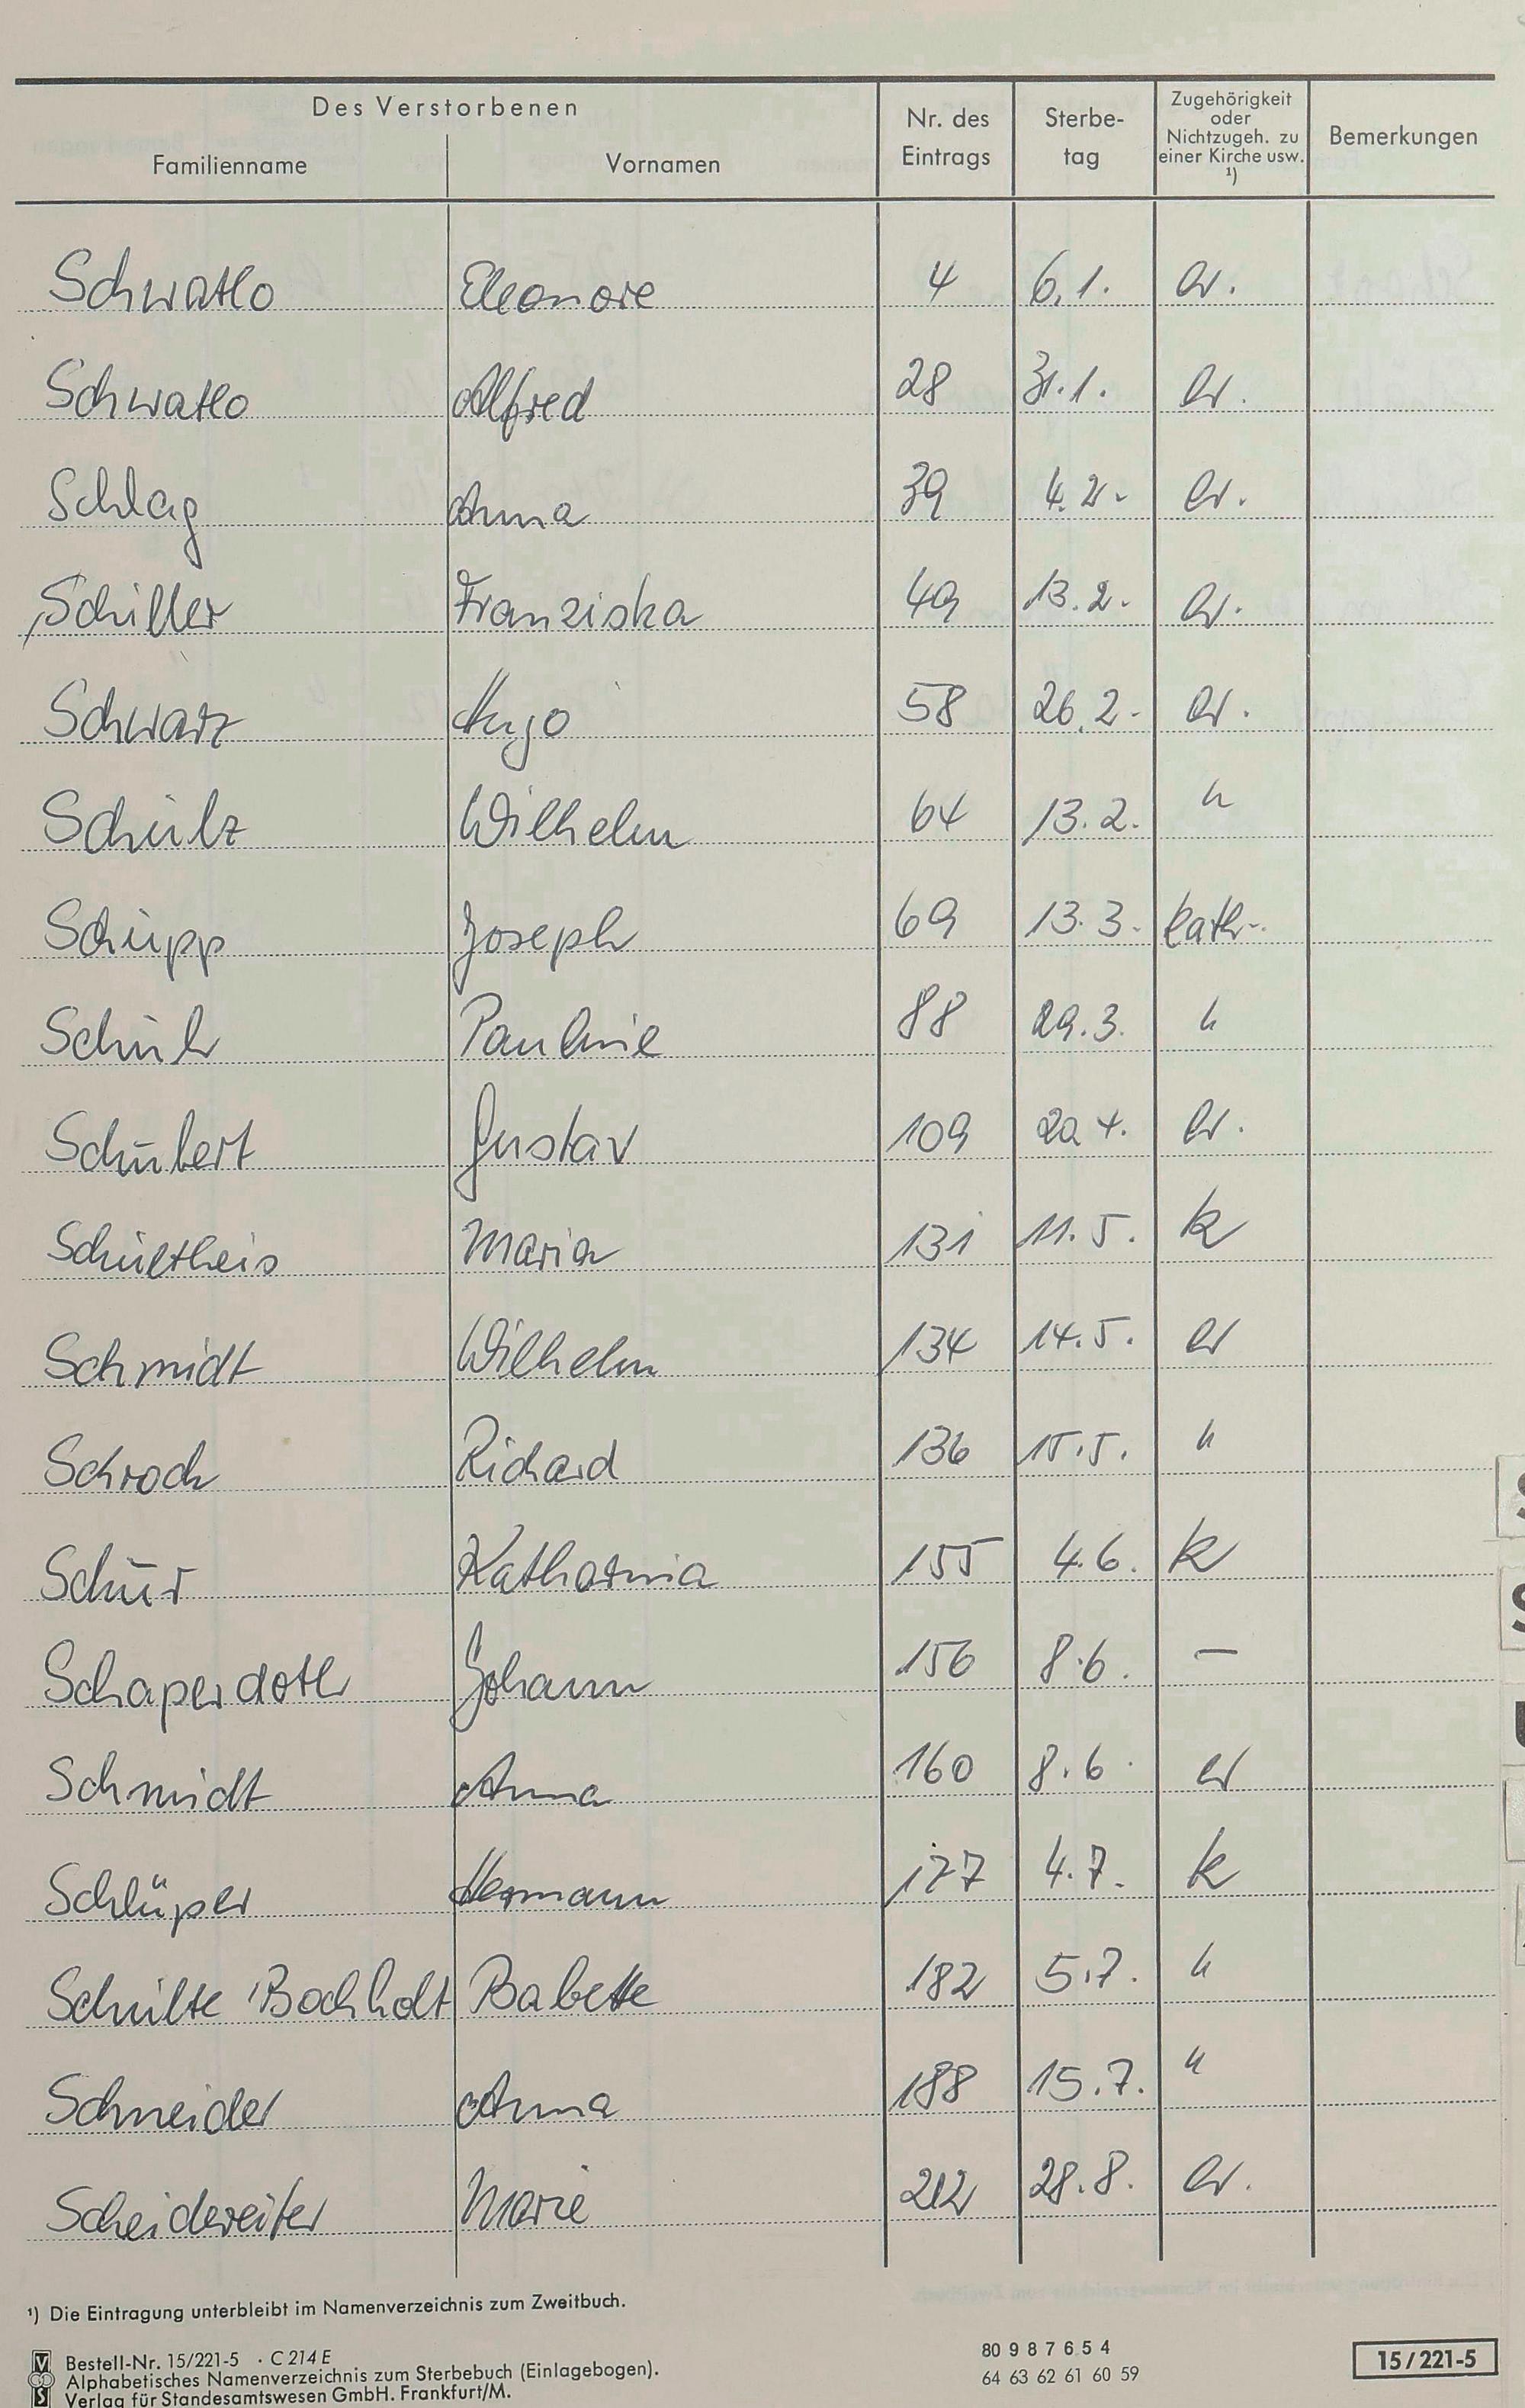 Des Verstorbenen
Familienname Vornamen Nr. des Eintrags Sterbe-tag Zugehörigkeit oder Nichtzugeh. zu einer Kirche usw. ¹) Bemerkungen
Schwatlo Eleonore 4 6.1. ev.
Schwatlo Alfred 28 31.1. ev.
Schlag Anna 39 4.2. ev.
Schiller Franziska 49 13.2. ev.
Schwarz Hugo 58 26.2. ev.
Schulz Wilhelm 64 13.2. "
Schupp Joseph 69 13.3. kath.
Schuh Pauline 88 29.3. "
Schubert Gustav 109 20.4. ev.
Schultheis Maria 131 11.5. k
Schmidt Wilhelm 134 14.5. ev
Schrock Richard 136 15.5. "
Schur Katharina 155 4.6. k
Schaperdoth Johann 156 8.6. —
Schmidt Anna 160 8.6. ev
Schlüper Hermann 177 4.7. k
Schulte Bochholt Babette 182 5.7. "
Schneider Anna 188 15.7. "
Scheidereiter Marie 212 28.8. ev.
¹) Die Eintragung unterbleibt im Namenverzeichnis zum Zweitbuch.
Bestell-Nr. 15/221-5 · C 214 E
Alphabetisches Namenverzeichnis zum Sterbebuch (Einlagebogen).
Verlag für Standesamtswesen GmbH. Frankfurt/M.
80 9 8 7 6 5 4
64 63 62 61 60 59
15/221-5